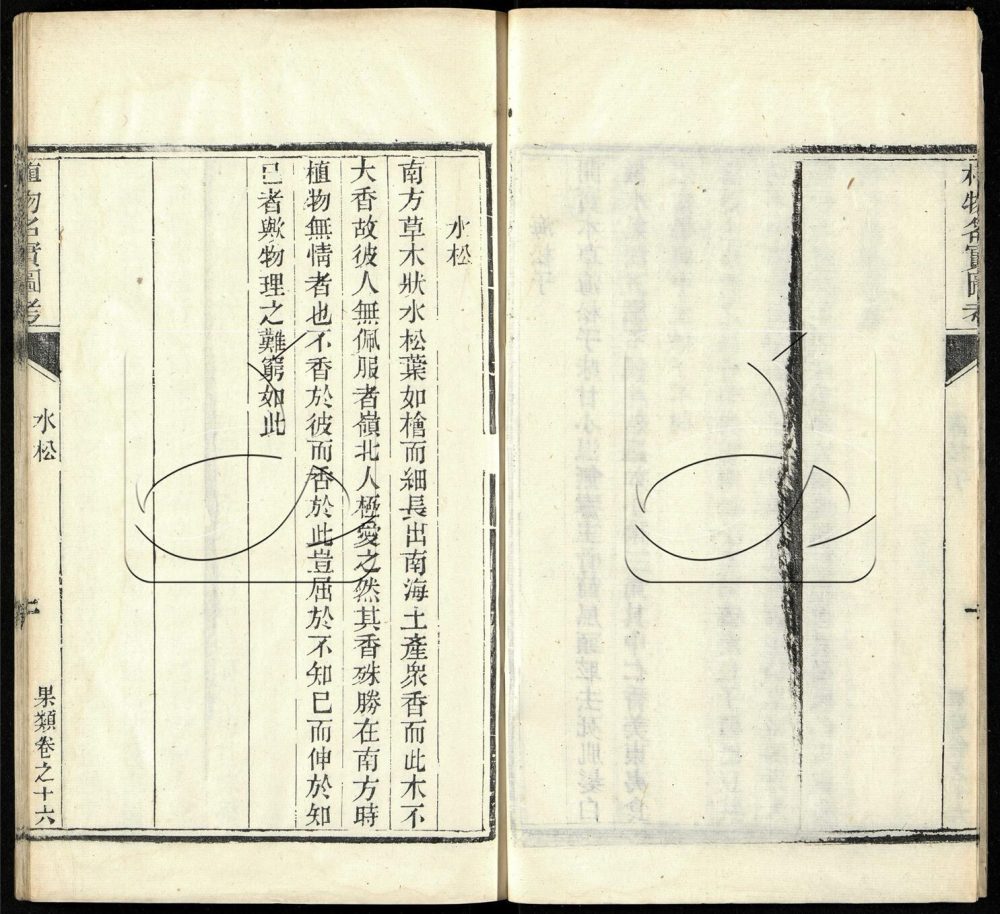 植物名實圖考
一
水松
南方草木狀水松葉如檜而細長出南海土產衆香而此木不
大香故彼人無佩服者嶺北人極愛之然其香殊勝在南方時
植物無情者也不香於彼而香於此豈屈於不知已而伸於知
已者歟物理之難窮如此
植物名實圖考
水松
二
果類卷之十六